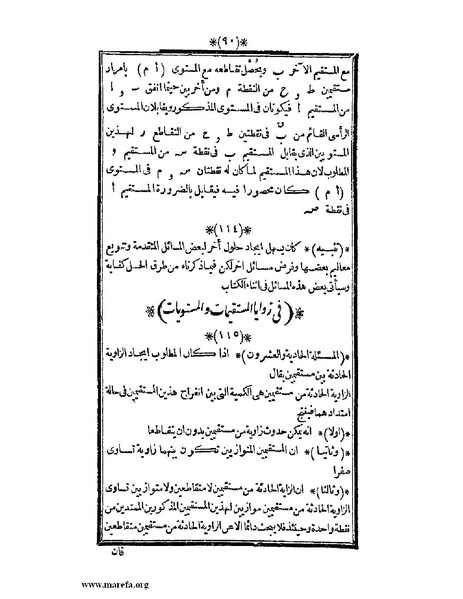 *(٩٠)*
مع المستقيم الآخر ب ويحصل تقاطعه مع المستوى (أ م) بامرار
مستقيمين ط و ح من النقطة م ومن أخريين حيثما اتفق س و ا
من المستقيم أ فيكونان فى المستوى المذكور ويقابلان المستوى
الرأسى القائم من ب فى نقطتين ط و ح من التقاطع ر لهذين
المستويين الذى يقابل المستقيم ب فى نقطة س من المستقيم و
المطلوب لان هذا المستقيم لما كان له نقطتان س و م فى المستوى
(أ م) كان محصورا فيه فيقابل بالضرورة المستقيم أ
فى نقطة ص
*(١١٤)*
*(تنبيه)* كان يسهل ايجاد حلول أخر لبعض المسائل المتقدمة وتنويع
معاليم بعضها وفرض مسائل اخر لكن فيما ذكرناه من طرق الحل كفاية
وسيأتى بعض هذه المسائل فى اثناء الكتاب
*(فى زوايا المستقيمات والمستويات)*
*(١١٥)*
*(المسئلة الحادية والعشرون)* اذا كان المطلوب ايجاد الزاوية
الحادثة بين مستقيمين يقال
الزاوية الحادثة من مستقيمين هى الكمية التى بين انفراج هذين المستقيمين فى حالة
امتدادهما فينتج
*(اولا)* انه يمكن حدوث زاوية من مستقيمين بدون ان يتقاطعا
*(وثانيا)* ان المستقيمين المتوازيين تكون بينهما زاوية تساوى
صفرا
*(وثالثا)* ان الزاوية الحادثة من مستقيمين لا متقاطعين ولا متوازيين تساوى
الزاوية الحادثة من مستقيمين موازيين لهذين المستقيمين المذكورين الممتدين من
نقطة واحدة وحينئذ فلا يبحث دائما الا عن الزاوية الحادثة من مستقيمين متقاطعين
فان
www.marefa.org